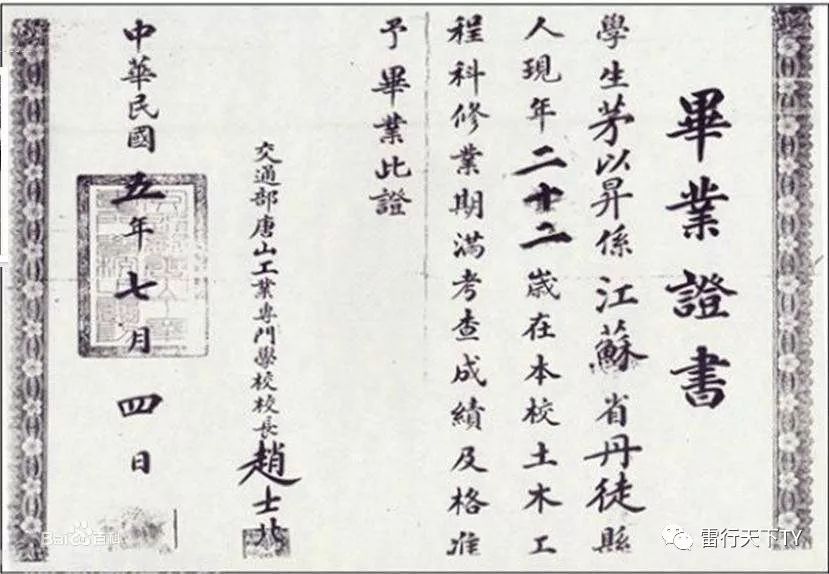 畢業證書
學生茅以昇係江蘇省丹徒縣
人現年二十二歲在本校土木工
程科修業期滿考查成績及格准
予畢業此證
交通部唐山工業專門學校校長趙士北
中華民國五年七月四日
Baidu百科
雷行天下TY